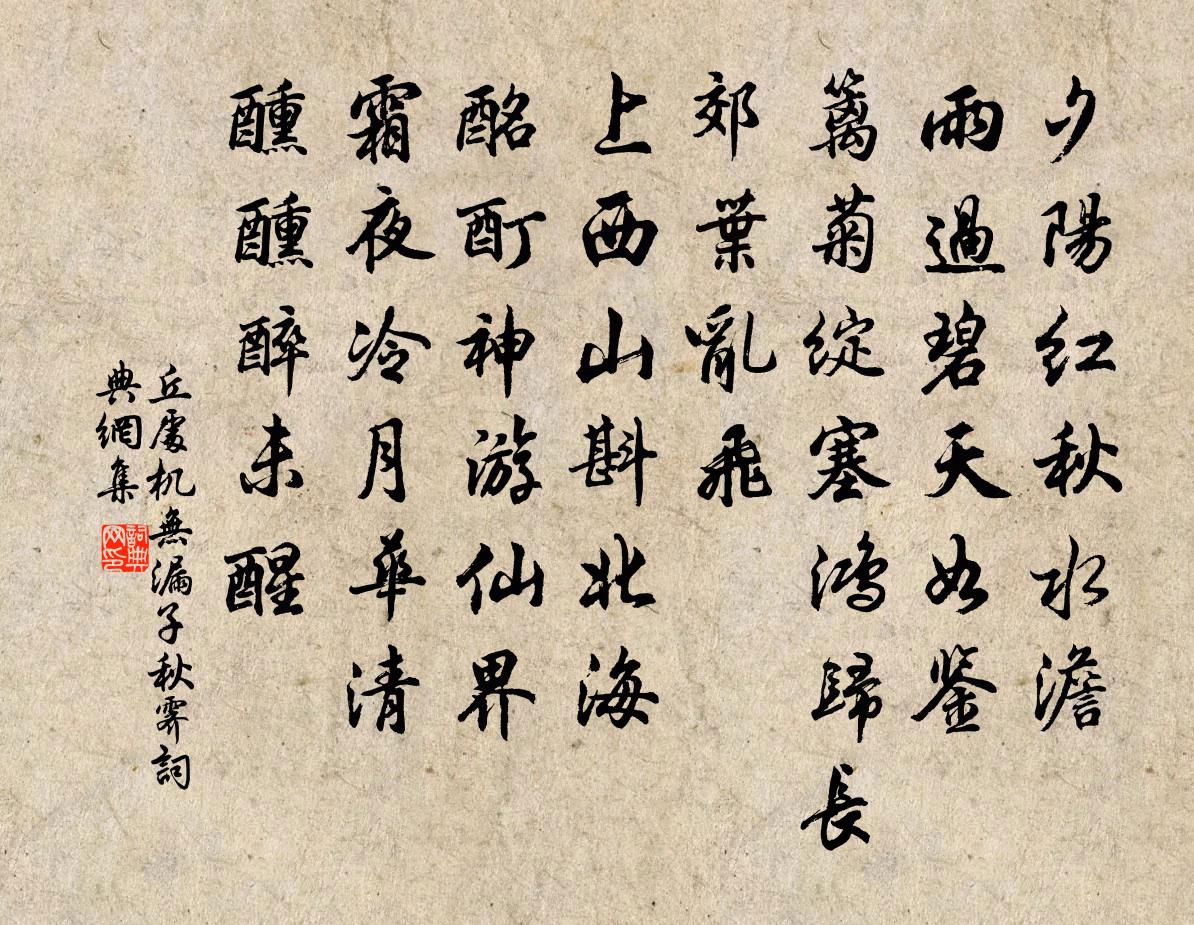 夕陽紅秋水澹
雨過碧天如鉴
籬菊綻塞鴻歸長
郊葉亂飛
上西山斟北海
酩酊神游仙界
霜夜冷月華清
醺醺醉未醒
丘處机無漏子秋霽詞
典網集
詞典
网印